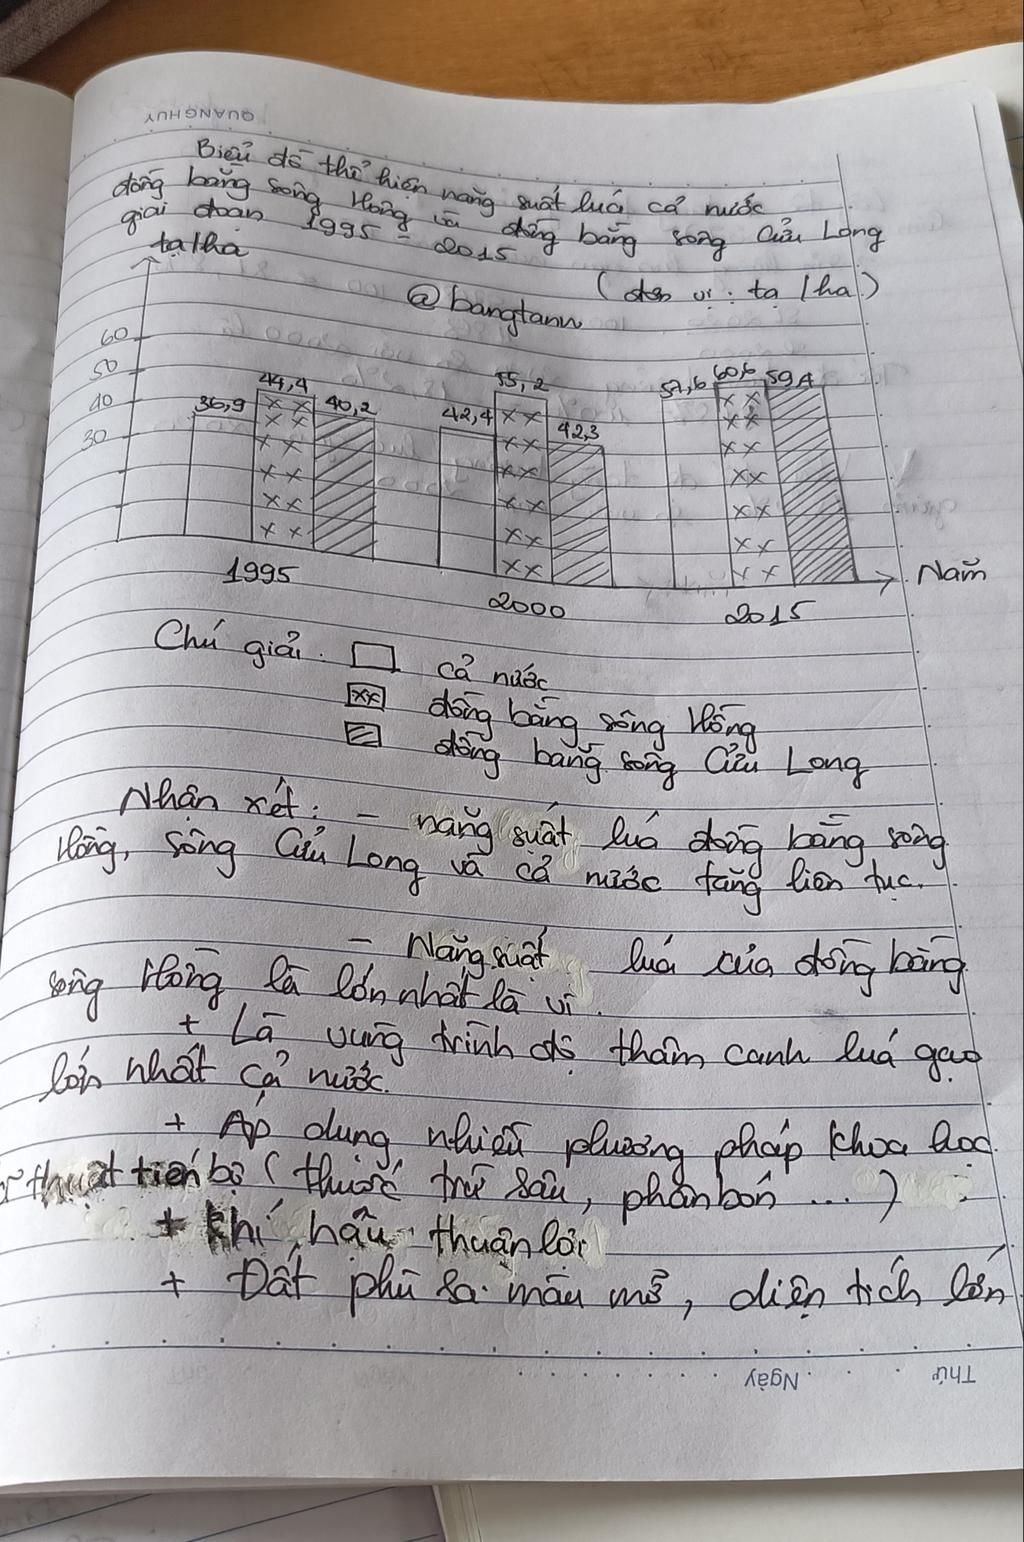 QUANGHUY
Biểu đồ thể hiện năng suất luá cả nước
đồng bằng sông Hồng và đồng bằng sông Cửu Long
giai đoạn 1995 - 2015
tạ/ha
(đơn vị: tạ/ha)
@bangtann
60
50
40
30
36,9
44,4
40,2
42,4
55,2
42,3
57,6
60,6
59,4
Năm
1995
2000
2015
Chú giải: cả nước
xx đồng bằng sông Hồng
đồng bằng sông Cửu Long
Nhận xét: - năng suất luá đồng bằng sông
Hồng, sông Cửu Long và cả nước tăng liên tục.
- Năng suất luá của đồng bằng
sông Hồng là lớn nhất là vì
+ Là vùng trình độ thâm canh luá gạo
lớn nhất cả nước.
+ Áp dụng nhiều phương pháp khoa học
thuật tiến bộ (thuốc trừ sâu, phân bón ...)
+ khí hậu thuận lợi
+ Đất phù sa màu mỡ, diện tích lớn
Thứ Ngày